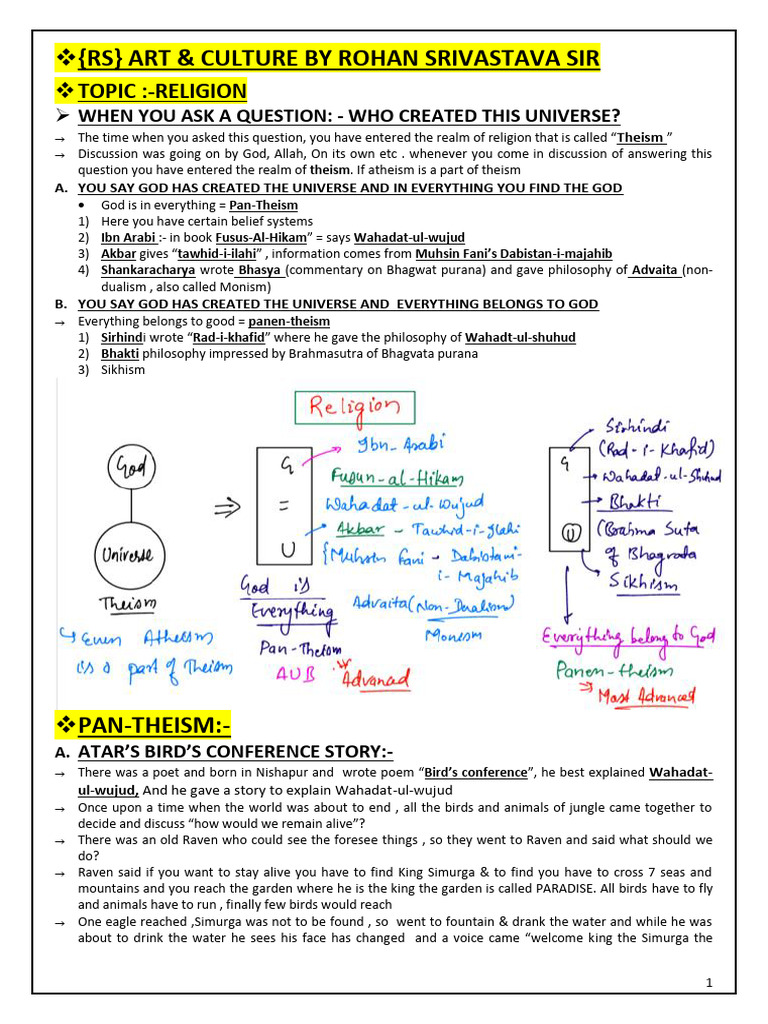 ❖{RS} ART & CULTURE BY ROHAN SRIVASTAVA SIR
❖ TOPIC :-RELIGION
➢ WHEN YOU ASK A QUESTION: - WHO CREATED THIS UNIVERSE?
→ The time when you asked this question, you have entered the realm of religion that is called “Theism ”
→ Discussion was going on by God, Allah, On its own etc . whenever you come in discussion of answering this
question you have entered the realm of theism. If atheism is a part of theism
A. YOU SAY GOD HAS CREATED THE UNIVERSE AND IN EVERYTHING YOU FIND THE GOD
• God is in everything = Pan-Theism
1) Here you have certain belief systems
2) Ibn Arabi :- in book Fusus-Al-Hikam” = says Wahadat-ul-wujud
3) Akbar gives “tawhid-i-ilahi” , information comes from Muhsin Fani’s Dabistan-i-majahib
4) Shankaracharya wrote Bhasya (commentary on Bhagwat purana) and gave philosophy of Advaita (non-
dualism , also called Monism)
B. YOU SAY GOD HAS CREATED THE UNIVERSE AND EVERYTHING BELONGS TO GOD
→ Everything belongs to good = panen-theism
1) Sirhindi wrote “Rad-i-khafid” where he gave the philosophy of Wahadt-ul-shuhud
2) Bhakti philosophy impressed by Brahmasutra of Bhagvata purana
3) Sikhism
Religion
God
Universe
Theism
Even Atheism
is a part of Theism
G
=
U
God is
Everything
Pan-Theism
AUB
Advanced
Ibn-Arabi
Fusun-al-Hikam
Wahadat-ul-Wujud
Akbar - Tawhid-i-Ilahi
{Muhsin Fani - Dabistani-
i-Majahib
Advaita(Non-Dualism)
Monism
G
U
Sirhindi
(Rad-i-Khafid)
Wahadat-ul-Shuhud
Bhakti
(Brahma Suta
of Bhagvada
Sikhism
Everything belong to God
Panen-theism
Most Advanced
❖PAN-THEISM:-
A. ATAR’S BIRD’S CONFERENCE STORY:-
→ There was a poet and born in Nishapur and wrote poem “Bird’s conference”, he best explained Wahadat-
ul-wujud, And he gave a story to explain Wahadat-ul-wujud
→ Once upon a time when the world was about to end , all the birds and animals of jungle came together to
decide and discuss “how would we remain alive”?
→ There was an old Raven who could see the foresee things , so they went to Raven and said what should we
do?
→ Raven said if you want to stay alive you have to find King Simurga & to find you have to cross 7 seas and
mountains and you reach the garden where he is the king the garden is called PARADISE. All birds have to fly
and animals have to run , finally few birds would reach
→ One eagle reached ,Simurga was not to be found , so went to fountain & drank the water and while he was
about to drink the water he sees his face has changed and a voice came “welcome king the Simurga the
1